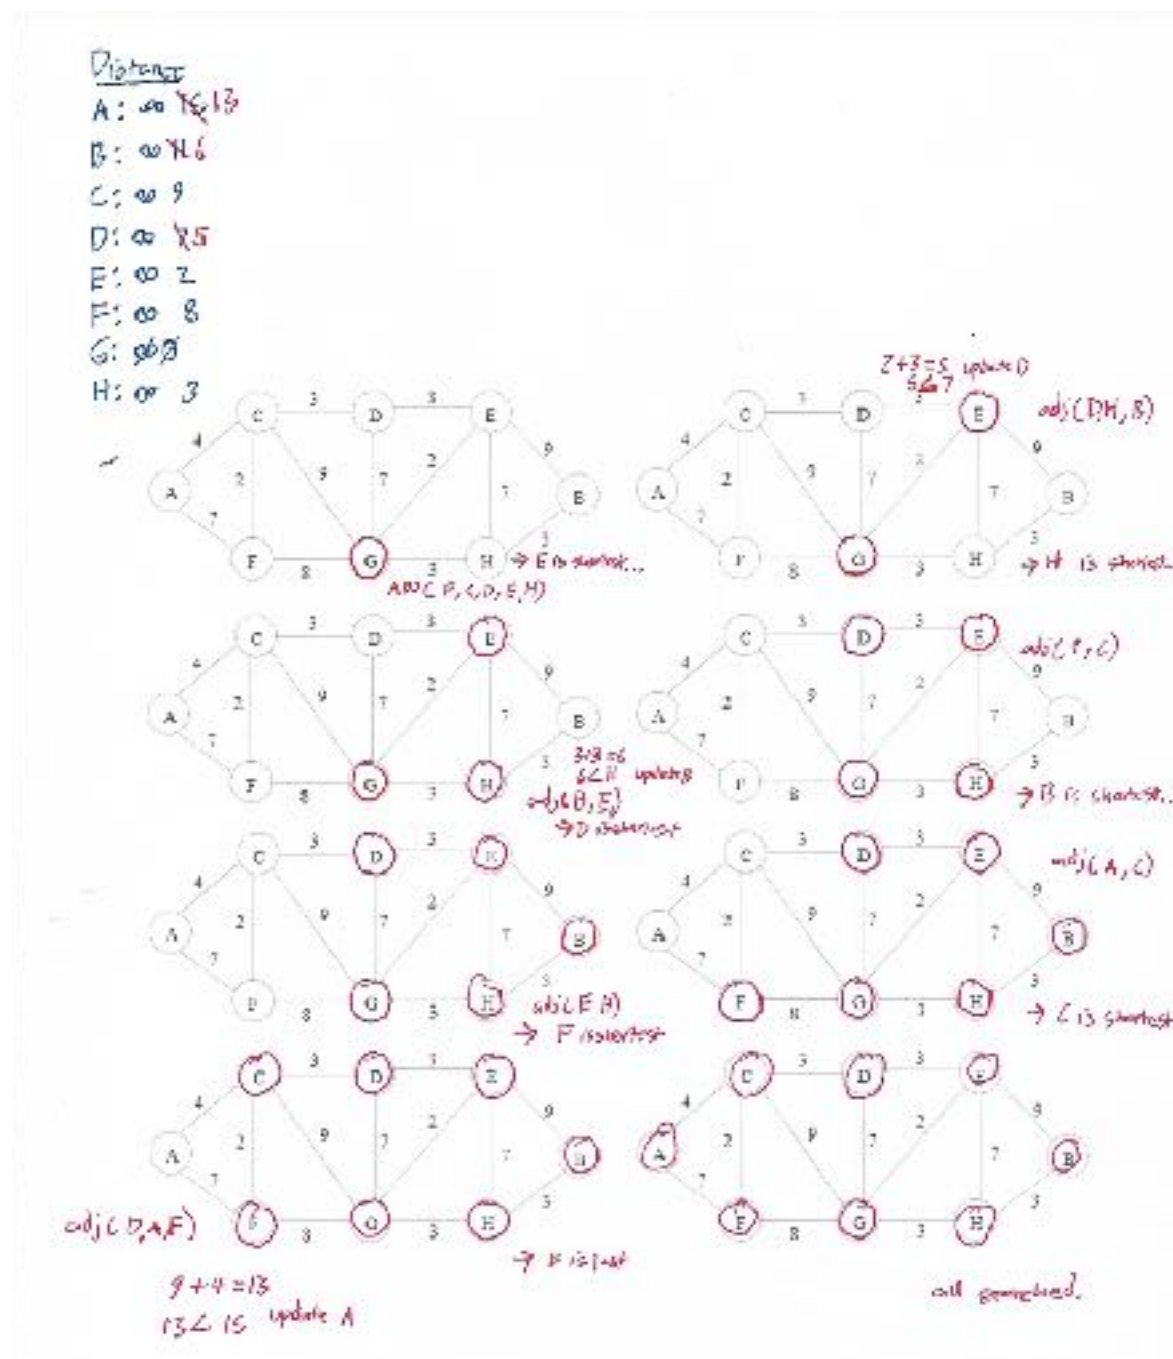 Distance
A: ∞ 15 13
B: ∞ 11 6
C: ∞ 9
D: ∞ 7 5
E: ∞ 2
F: ∞ 8
G: ∞ 0
H: ∞ 3
C 3 D 3 E
4 2 9 7 2 7 9
A B
7 3
F 8 G 3 H
→ E is shortest...
ADJ( F, C, D, E, H)
2+3=5 update D
5<7
C 3 D 3 E
adj(D,H,B)
4 2 9 7 2 7 9
A B
7 3
F 8 G 3 H
→ H is shortest...
C 3 D 3 E
4 2 9 7 2 7 9
A B
7 3
F 8 G 3 H
3+3=6
6<11 update B
→ D is shortest
C 3 D 3 E
4 2 9 7 2 7 9
A B
7 3
F 8 G 3 H
→ B is shortest...
C 3 D 3 E
4 2 9 7 2 7 9
A B
7 3
F 8 G 3 H
adj(E H)
→ F is shortest
C 3 D 3 E
adj(A,C)
4 2 9 7 2 7 9
A B
7 3
F 8 G 3 H
→ C is shortest
C 3 D 3 E
4 2 9 7 2 7 9
A B
7 3
F 8 G 3 H
adj(D,A,F)
9+4=13
13<15 update A
C 3 D 3 E
4 2 9 7 2 7 9
A B
7 3
F 8 G 3 H
all